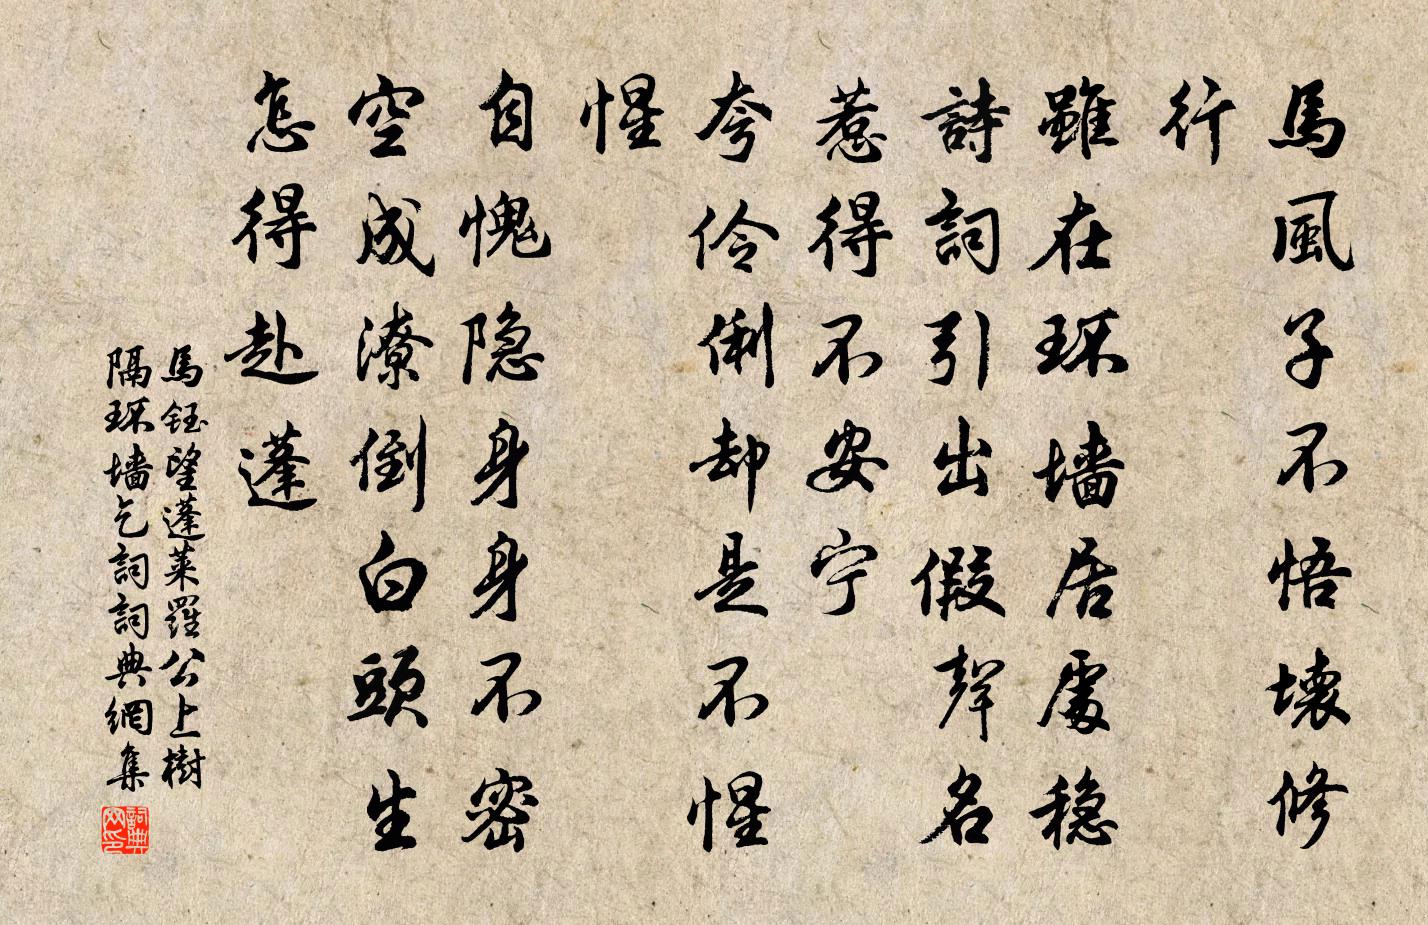 馬風子不悟壊修
行
雖在环墙居處穏
詩詞引出假聲名
惹得不安宁
夸伶俐却是不惺
惺
自愧隐身身不密
空成潦倒白頭生
怎得赴蓬
馬鈺望蓬萊羅公上樹
隔环墙乞詞詞典網集
詞典
网印